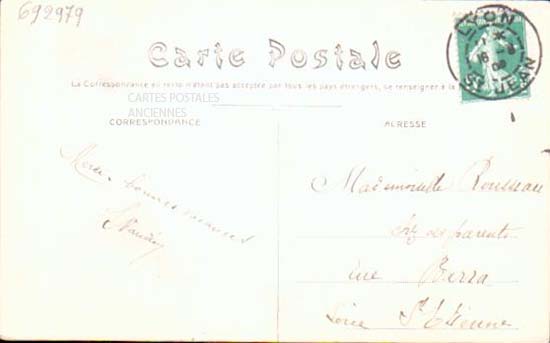 692979
LYON
16 - 8
08
ST JEAN
Carte Postale
La Correspondance au recto n'étant pas acceptée par tous les pays étrangers, se renseigner à la
CARTES POSTALES
ANCIENNES
CORRESPONDANCE
ADRESSE
bonnes vacances
Mademoiselle Rousseau
chez ses parents
rue Berra
Loire St Etienne